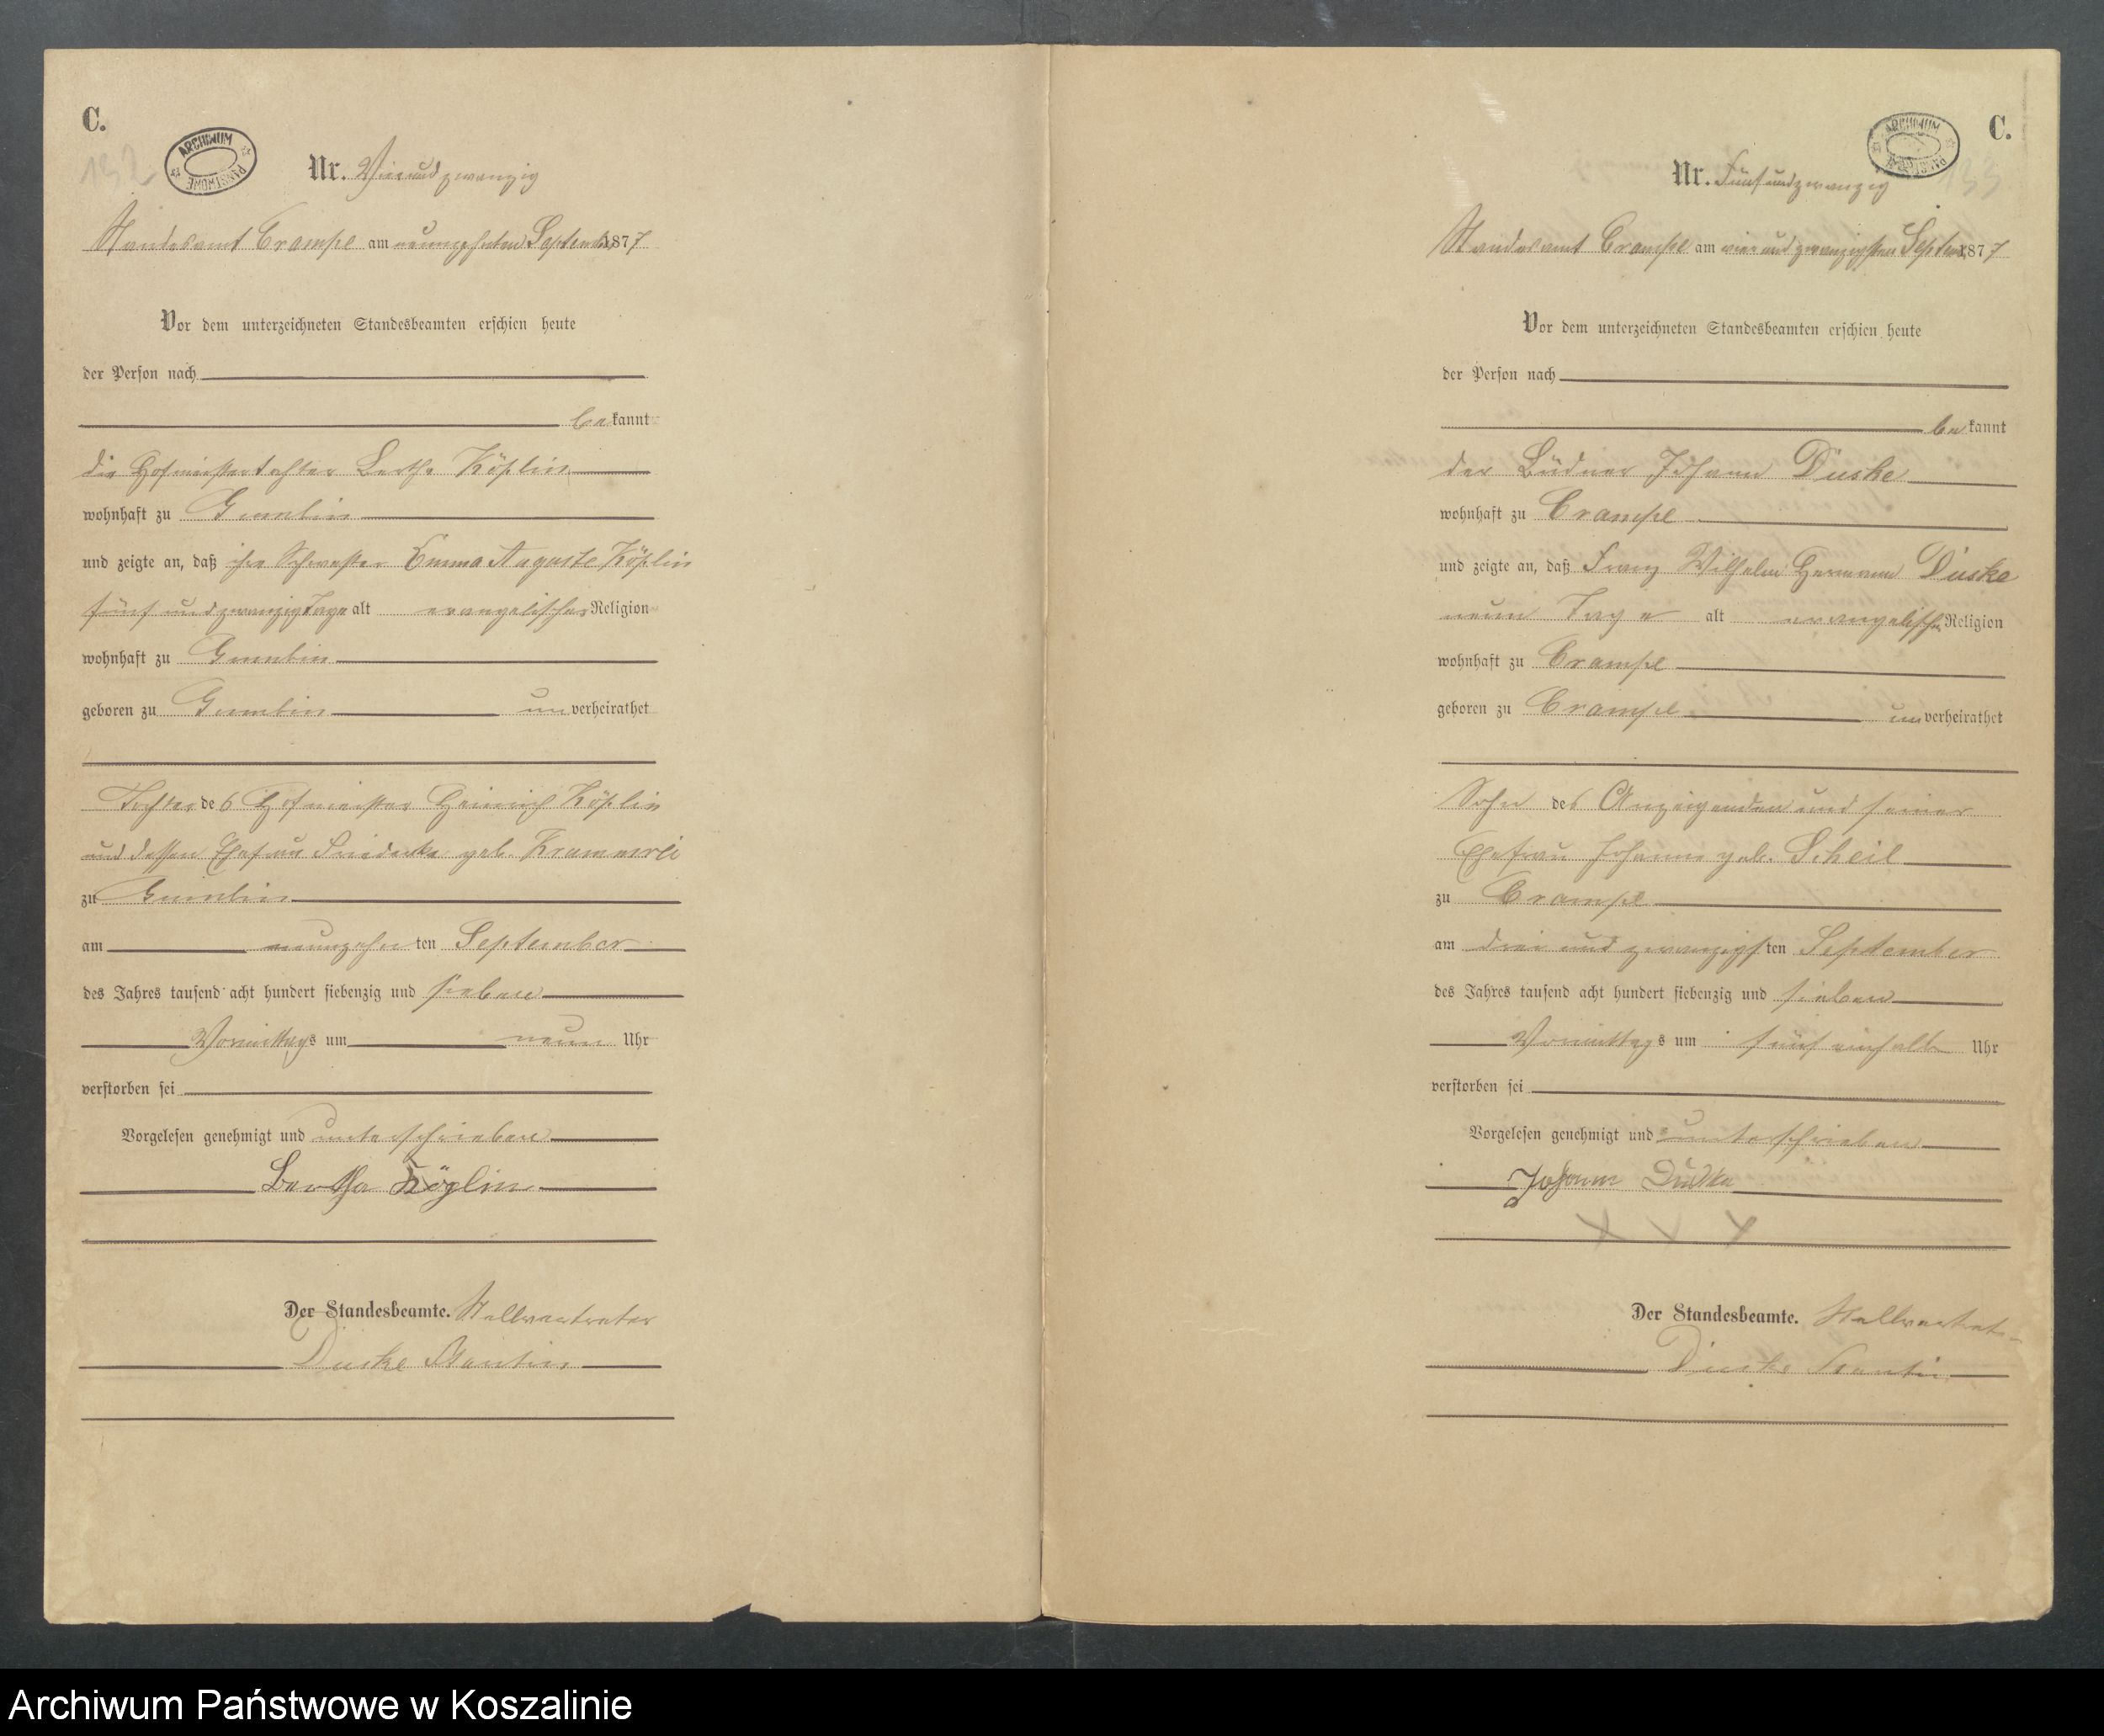 C.
152
ARCHIWUM PAŃSTWOWE
Nr. Vierundzwanzig
Standesamt Crampe am neunzehnten September 1877
Vor dem unterzeichneten Standesbeamten erschien heute
der Person nach
bekannt
die Hofmeistertochter Bertha Köplin
wohnhaft zu Gumbin
und zeigte an, daß ihre Schwester Emma Auguste Köplin
fünf und zwanzig Tage alt evangelischer Religion
wohnhaft zu Gumbin
geboren zu Gumbin unverheirathet
Tochter des Hofmeister Heinrich Köplin
und dessen Ehefrau Friederike geb.
zu Gumbin
am neunzehnten September
des Jahres tausend acht hundert siebenzig und sieben
Vormittags um neun Uhr
verstorben sei
Vorgelesen genehmigt und unterschrieben
Bertha Köplin
Der Standesbeamte. Stellvertreter
Duske
C.
ARCHIWUM
133
Nr. Fünfundzwanzig
Standesamt Crampe am vier und zwanzigsten Septem 1877
Vor dem unterzeichneten Standesbeamten erschien heute
der Person nach
bekannt
der Büdner Johann Duske
wohnhaft zu Crampe
und zeigte an, daß Franz Wilhelm Hermann Duske
neun Tage alt evangelischer Religion
wohnhaft zu Crampe
geboren zu Crampe unverheirathet
Sohn des Anzeigenden und seiner
Ehefrau Johanne geb. Scheil
zu Crampe
am drei und zwanzigsten September
des Jahres tausend acht hundert siebenzig und sieben
Vormittags um fünf einhalb Uhr
verstorben sei
Vorgelesen genehmigt und unterschrieben
Johann Duske
X X X
Der Standesbeamte. Stellvertreter
Duske
Archiwum Państwowe w Koszalinie